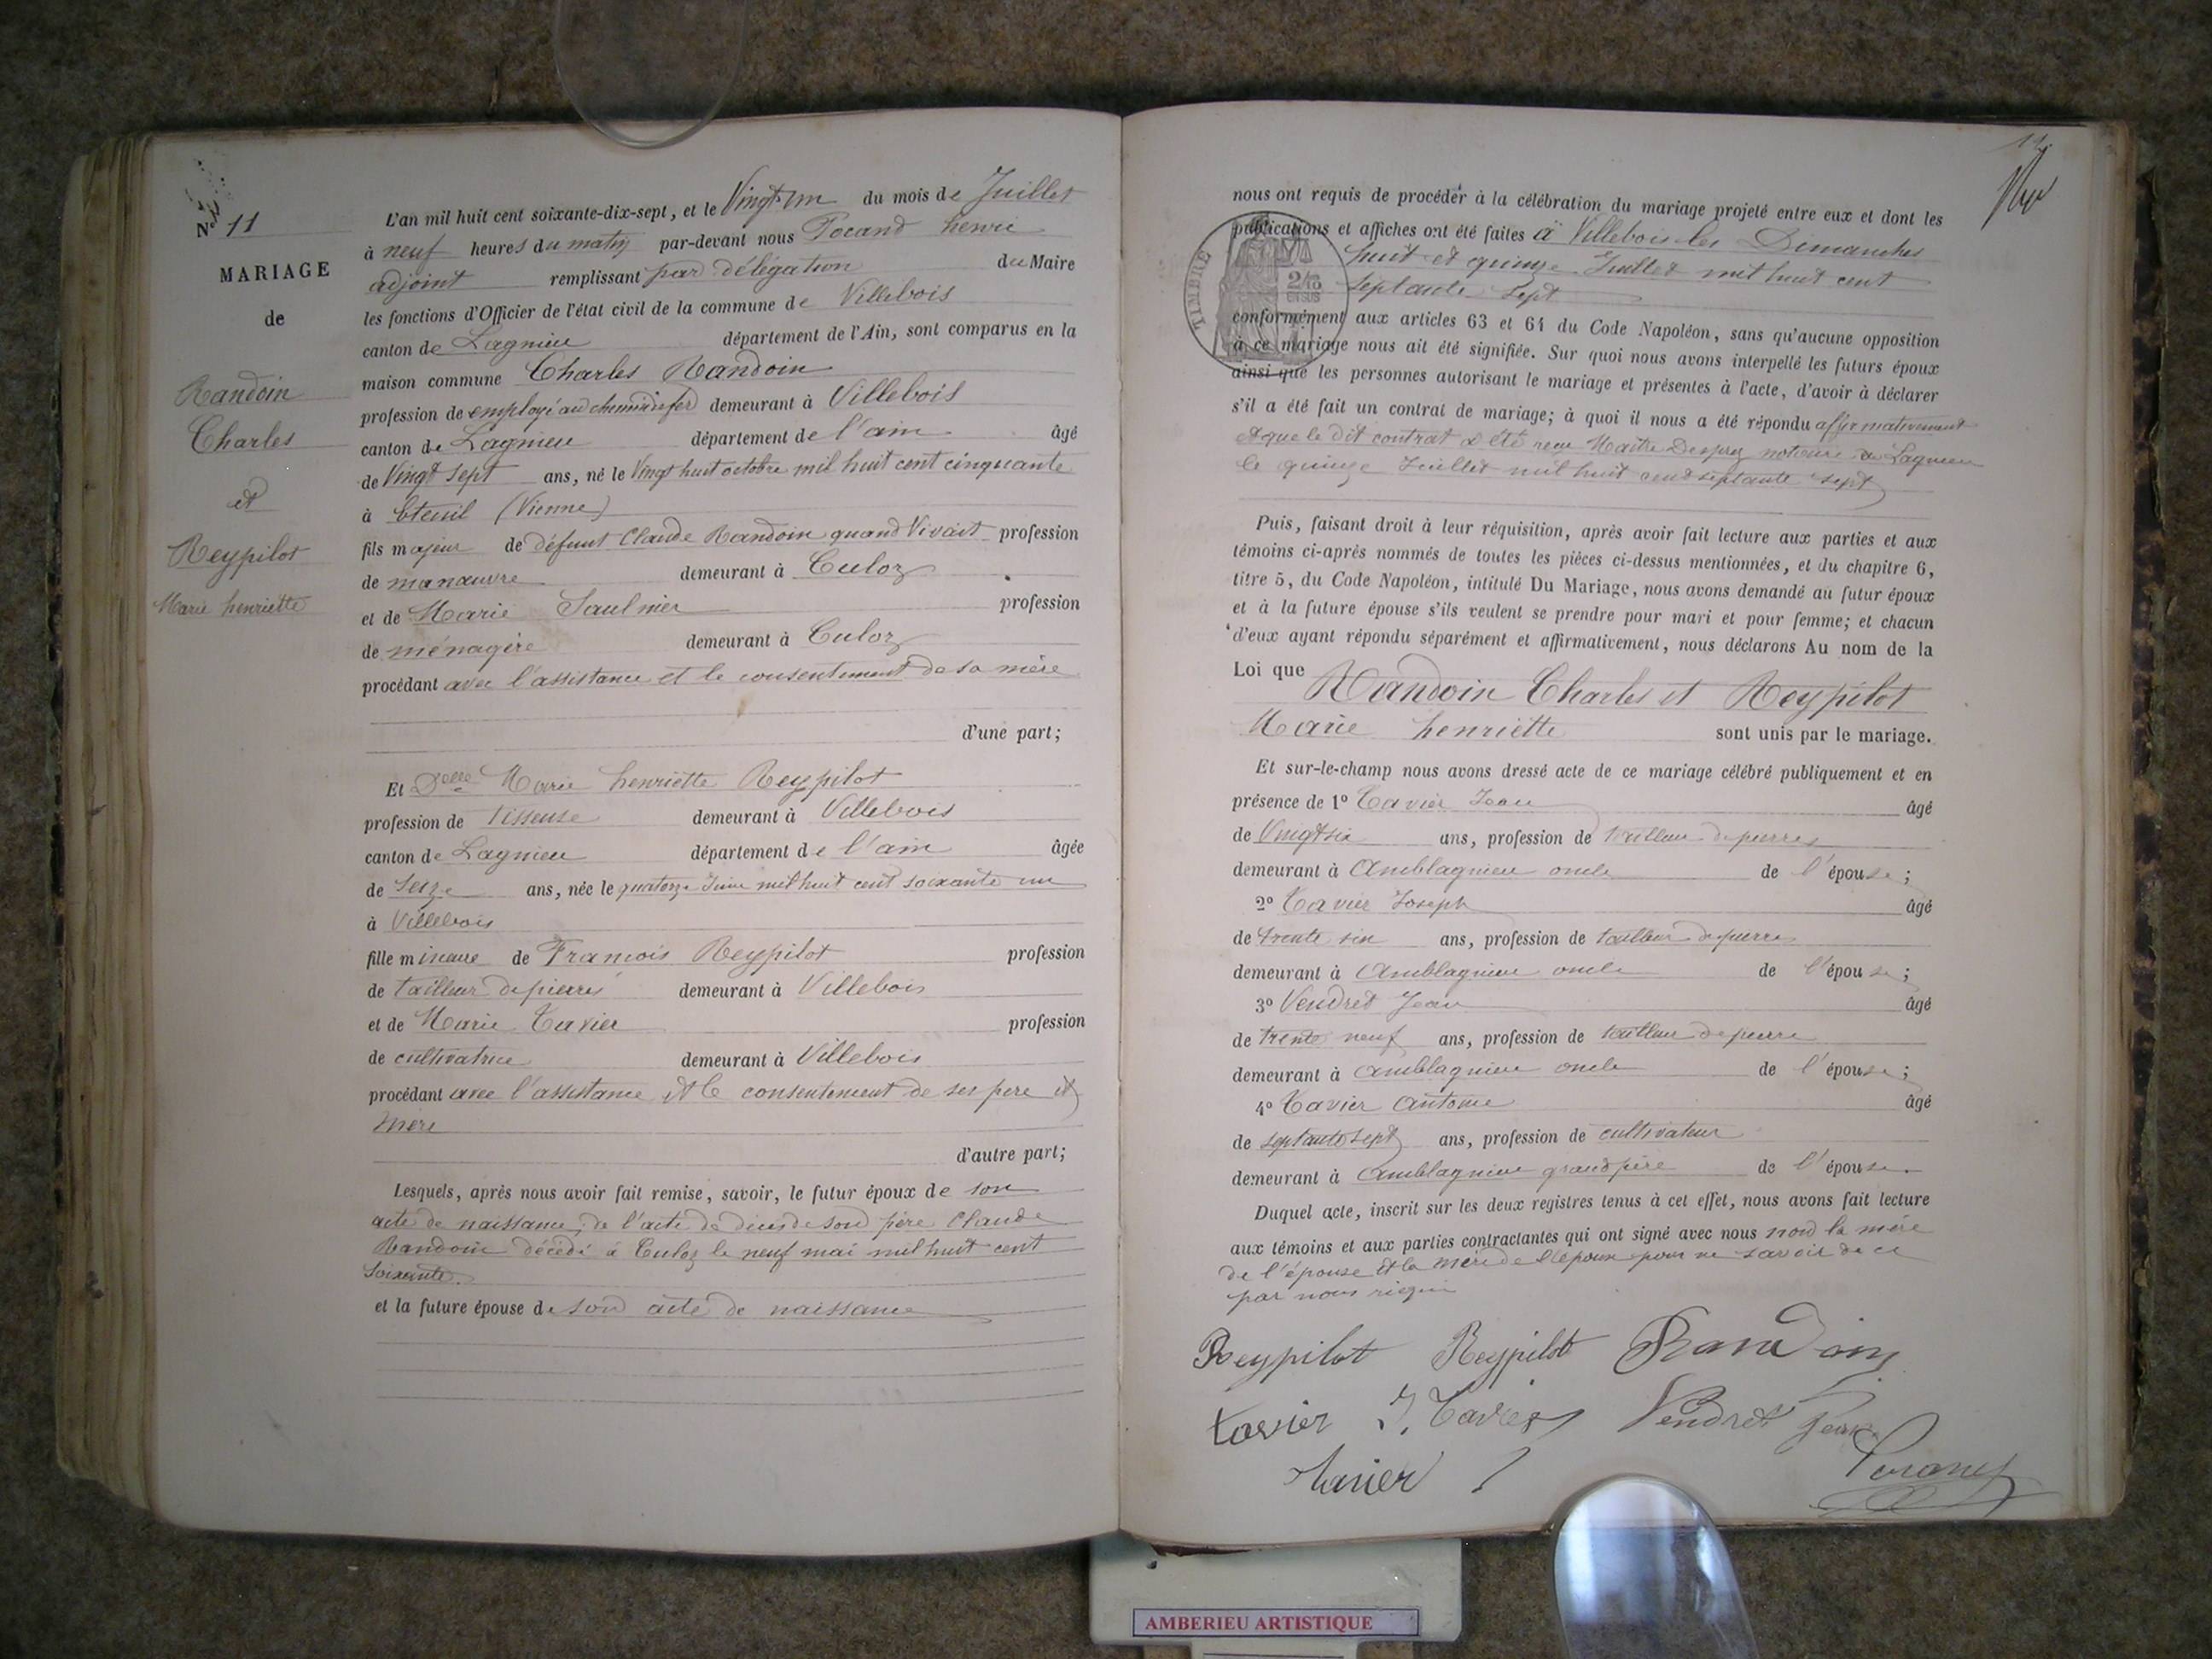 Nº 11
MARIAGE
de
Randoin
Charles
et
Reypilot
Marie henriette
L'an mil huit cent soixante-dix-sept, et le Vingt un du mois de Juillet
à neuf heures du matin par-devant nous Pocand henri
adjoint remplissant par délégation du Maire
les fonctions d'Officier de l'état civil de la commune de Villebois
canton de Lagnieu département de l'Ain, sont comparus en la
maison commune Charles Randoin
profession de employé au chemin de fer demeurant à Villebois
canton de Lagnieu département de l'ain âgé
de Vingt sept ans, né le Vingt huit octobre mil huit cent cinquante
à (Vienne)
fils majeur de défunt Claude Randoin quand Vivait profession
de manœuvre demeurant à Culoz
et de Marie Saulnier profession
de ménagère demeurant à Culoz
procédant avec l'assistance et le consentement de sa mère
d'une part;
Et Delle Marie henriette Reypilot
profession de tisseuse demeurant à Villebois
canton de Lagnieu département de l'ain âgée
de seize ans, née le quatorze Juin mil huit cent soixante un
à Villebois
fille mineure de Francois Reypilot profession
de tailleur de pierres demeurant à Villebois
et de Marie Tavier profession
de cultivatrice demeurant à Villebois
procédant avec l'assistance et le consentement de ses pere et
mere
d'autre part;
Lesquels, après nous avoir fait remise, savoir, le futur époux de son
acte de naissance, de l'acte de décès de son père Claude
Randoin décédé à Culoz le neuf mai mil huit cent
soixante
et la future épouse de son acte de naissance
11
nous ont requis de procéder à la célébration du mariage projeté entre eux et dont les
publications et affiches ont été faites à Villebois les Dimanches
huit et quinze Juillet mil huit cent
septante sept
TIMBRE
2/10
EN SUS
conformément aux articles 63 et 64 du Code Napoléon, sans qu'aucune opposition
à ce mariage nous ait été signifiée. Sur quoi nous avons interpellé les futurs époux
ainsi que les personnes autorisant le mariage et présentes à l'acte, d'avoir à déclarer
s'il a été fait un contrat de mariage; à quoi il nous a été répondu affirmativement
et que le dit contrat a été recu Maitre notaire a Lagnieu
le quinze Juillet mil huit cent septante sept
Puis, faisant droit à leur réquisition, après avoir fait lecture aux parties et aux
témoins ci-après nommés de toutes les pièces ci-dessus mentionnées, et du chapitre 6,
titre 5, du Code Napoléon, intitulé Du Mariage, nous avons demandé au futur époux
et à la future épouse s'ils veulent se prendre pour mari et pour femme; et chacun
d'eux ayant répondu séparément et affirmativement, nous déclarons Au nom de la
Loi que Randoin Charles et Reypilot
Marie henriette sont unis par le mariage.
Et sur-le-champ nous avons dressé acte de ce mariage célébré publiquement et en
présence de 1º Tavier Jean âgé
de Vingt six ans, profession de tailleur de pierres
demeurant à Amblagnieu oncle de l'épouse;
2º Tavier Joseph âgé
de trente six ans, profession de tailleur de pierres
demeurant à Amblagnieu oncle de l'épouse;
3º Vendret Jean âgé
de trente neuf ans, profession de tailleur de pierre
demeurant à Amblagnieu oncle de l'épouse;
4º Tavier Antoine âgé
de septante sept ans, profession de cultivateur
demeurant à Amblagnieu grand père de l'épouse.
Duquel acte, inscrit sur les deux registres tenus à cet effet, nous avons fait lecture
aux témoins et aux parties contractantes qui ont signé avec nous non la mère
de l'épouse et la mère de l'époux pour ne savoir de ce
par nous requis
Reypilot Reypilot Randoin
tavier J. Tavier Vendret Jean
tavier Pocand
AMBERIEU ARTISTIQUE